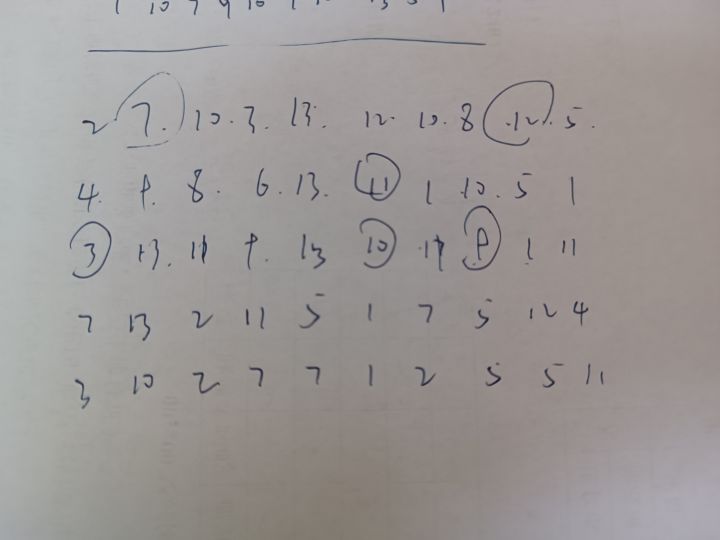 2 7. 10. 3. 13. 12. 10. 8 12. 5.
4. 9. 8. 6. 13. 11 1 10. 5 1
3 13. 11 9. 13 10 11 9 1 11
7 13 2 11 5 1 7 5 12 4
3 10 2 7 7 1 2 5 5 11